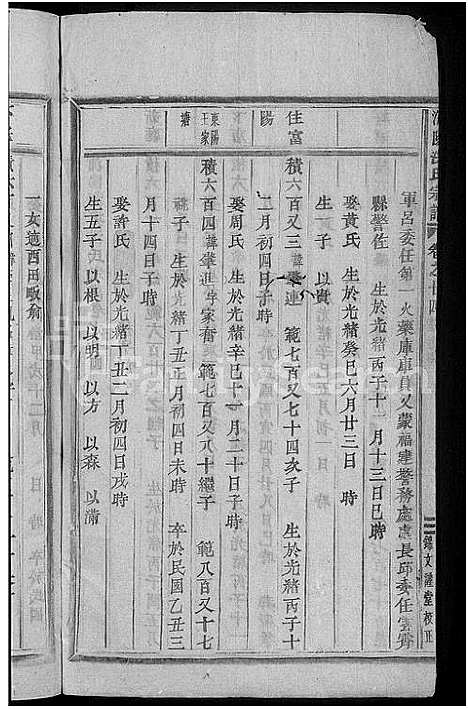 氏宗譜 卷之十四
錫文謹堂校正
軍呂委任第一火藥庫庫員又蒙福建警務處處長邱委任雲霄
縣警佐 生於光緒丙子十一月十三日巳時
娶黃氏 生於光緒癸巳六月廿三日 時
生子 以貴
住富陽
積六百又三 連 範七百又七十四亥子 生於光緒丙子十
二月初四日 時
娶周氏 生於光緒辛巳十一月二十日子時
東陽王家塘
積六百四 家奮 範七百又八十繼子 範八百又十七
子 生於光緒丁丑正月初四日未時 卒於民國乙丑三
月十四日子時
娶許氏 生於光緒丁丑二月初四日戌時
生五子 以根 以明 以方 以森 以滿
一女適西田畈俞